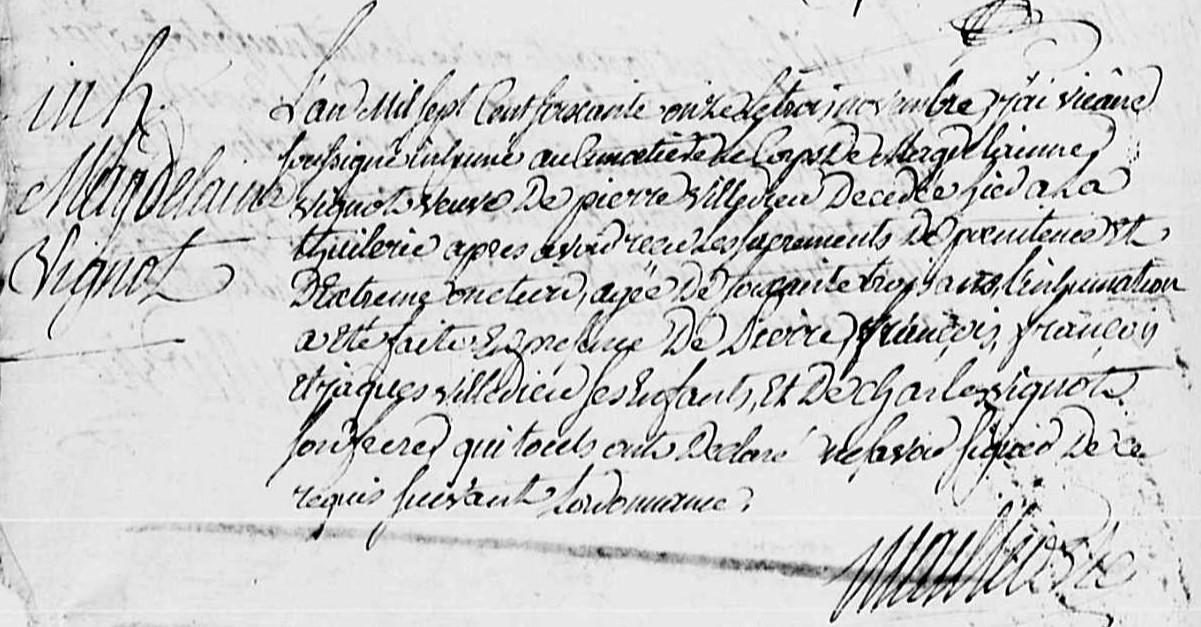 inh.
Magdelaine
Vignot
L'an Mil sept Cent soixante onze le trois novembre j'ai vicaire
soussigné inhumé au Cimetière le Corps De Magdelainne
Vignot veuve De pierre villedieu Decedée hier a La
thuilerie apres avoir recu les sacrements De penitence et
D'Extreme onction, agée De soixante trois ans, l'inhumation
a eté faite En presence De Pierre, françois, françois
et jaques villedieu ses Enfants, Et De charles vignot
son frere qui touts ont Declaré ne savoir signer De ce
requis suivant Lordonnance.